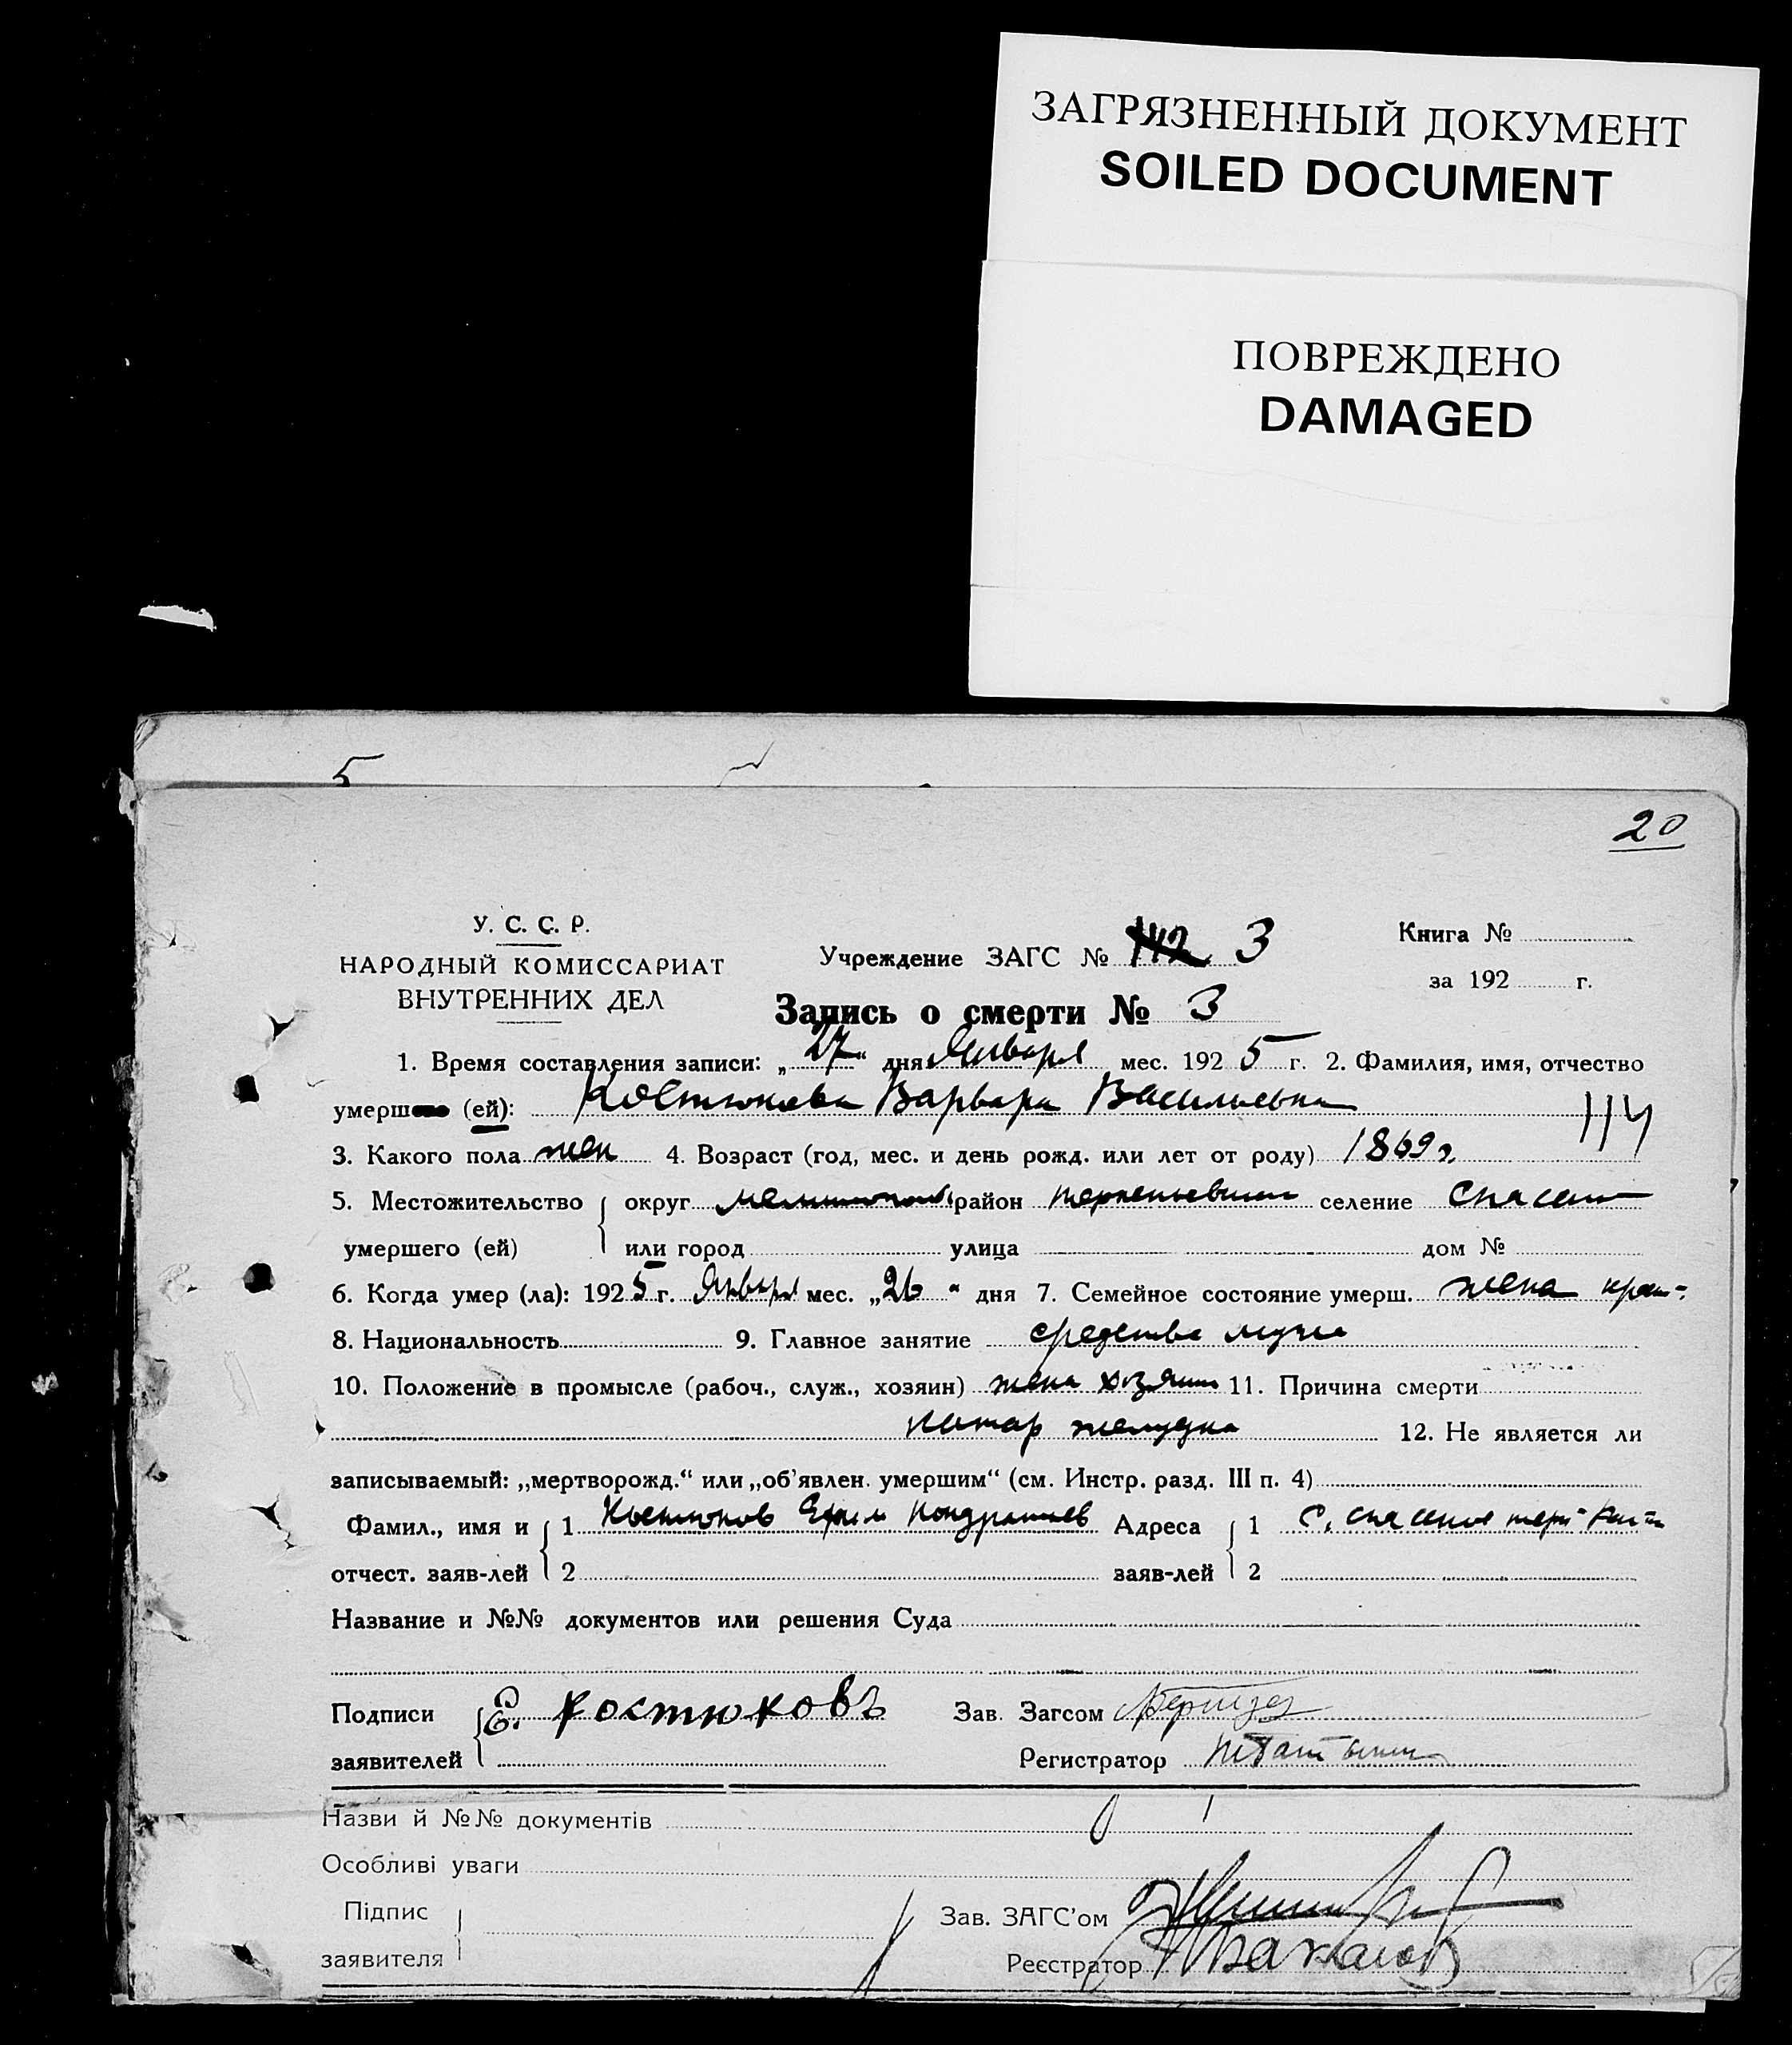 ЗАГРЯЗНЕННЫЙ ДОКУМЕНТ
SOILED DOCUMENT
ПОВРЕЖДЕНО
DAMAGED
5
20
У. С. С. Р.
НАРОДНЫЙ КОМИССАРИАТ
ВНУТРЕННИХ ДЕЛ
Учреждение ЗАГС № 142 3
Книга №
за 192 г.
Запись о смерти № 3
1. Время составления записи: „27“ дня Января мес. 1925 г. 2. Фамилия, имя, отчество
умерш (ей): Костюкова Варвара Васильевна 114
3. Какого пола жен 4. Возраст (год, мес. и день рожд. или лет от роду) 1869 г.
5. Местожительство округ район селение Спасск
умершего (ей) или город улица дом №
6. Когда умер (ла): 1925 г. Января мес. „26“ дня 7. Семейное состояние умерш. жена
8. Национальность 9. Главное занятие средства мужа
10. Положение в промысле (рабоч., служ., хозяин) жена хозяина 11. Причина смерти
катар желудка 12. Не является ли
записываемый: „мертворожд.“ или „об'явлен. умершим“ (см. Инстр. разд. III п. 4)
Фамил., имя и 1 Костюков Ефим Кондратьев Адреса 1 С.
отчест. заяв-лей 2 заяв-лей 2
Название и №№ документов или решения Суда
Подписи Е. Костюковъ Зав. Загсом
заявителей Регистратор
Назви й №№ документів
Особливі уваги
Підпис Зав. ЗАГС'ом
заявителя Реєстратор